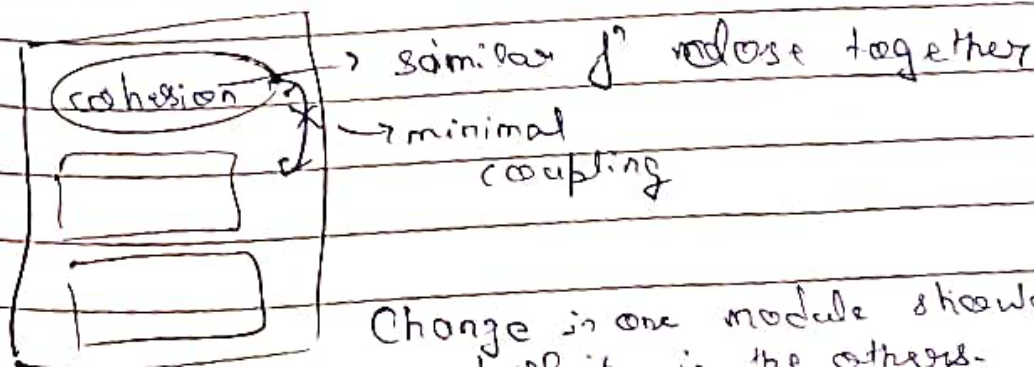 cohesion → similar fⁿ close together
→ minimal
coupling
Change in one module should
in the others.